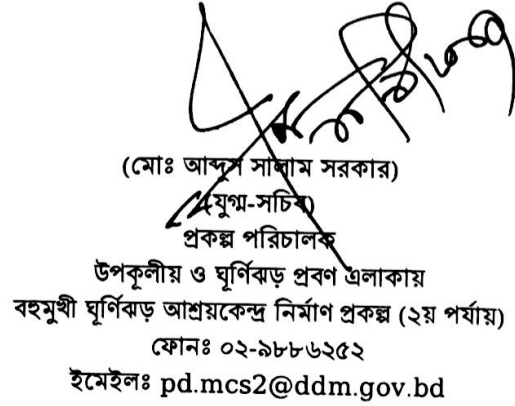 (মোঃ আব্দুস সালাম সরকার)
(যুগ্ম-সচিব)
প্রকল্প পরিচালক
উপকূলীয় ও ঘূর্ণিঝড় প্রবণ এলাকায়
বহুমুখী ঘূর্ণিঝড় আশ্রয়কেন্দ্র নির্মাণ প্রকল্প (২য় পর্যায়)
ফোনঃ ০২-৯৮৮৬২৫২
ইমেইলঃ pd.mcs2@ddm.gov.bd